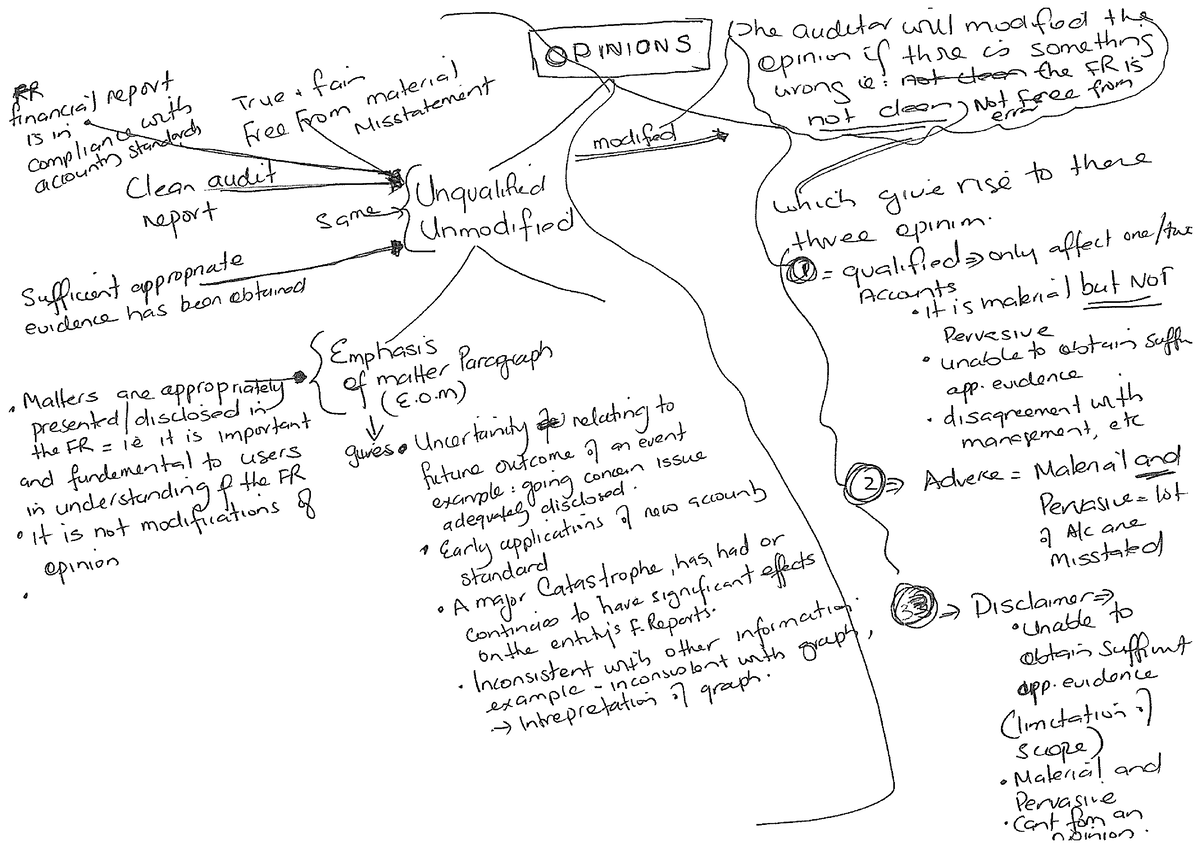 OPINIONS
The auditor will modified the
opinion if thre is something
wrong ie: not clean the FR is
not clean, Not free from
error
modified
FR
financial report
is in
compliance with
accounty standards
True & fair
Free from material
Misstatement
Clean audit
report
Same
Unqualified
Unmodified
Sufficient appropriate
evidence has been obtained
which give rise to there
three opinion.
① = qualified ⇒ only affect one/two
Accounts
• It is material but NOT
Pervasive
• unable to obtain suffi
app. evidence
• disagreement with
management, etc
② ⇒ Adverse = Material and
Pervasive = lot
of A/c are
Misstated
③ ⇒ Disclaimer ⇒
• Unable to
obtain suffient
app. evidence
(limitation of
scope)
• Material and
Pervasive
• Cant form an
opinion.
Emphasis
of matter Paragraph
(E.O.M)
• Matters are appropriately
presented/disclosed in
the FR = ie it is important
and fundemental to users
in understanding of the FR
• it is not modifications of
opinion
•
gives • Uncertainity relating to
future outcome of an event
example: going concern issue
adequately disclosed.
• Early applications of new accounty
standard
• A major Catastrophe, has, had or
continies to have significant effects
on the entity's F. Reports.
• Inconsistent with other information.
example - inconsistent with graph,
→ Intrepretation of graph.